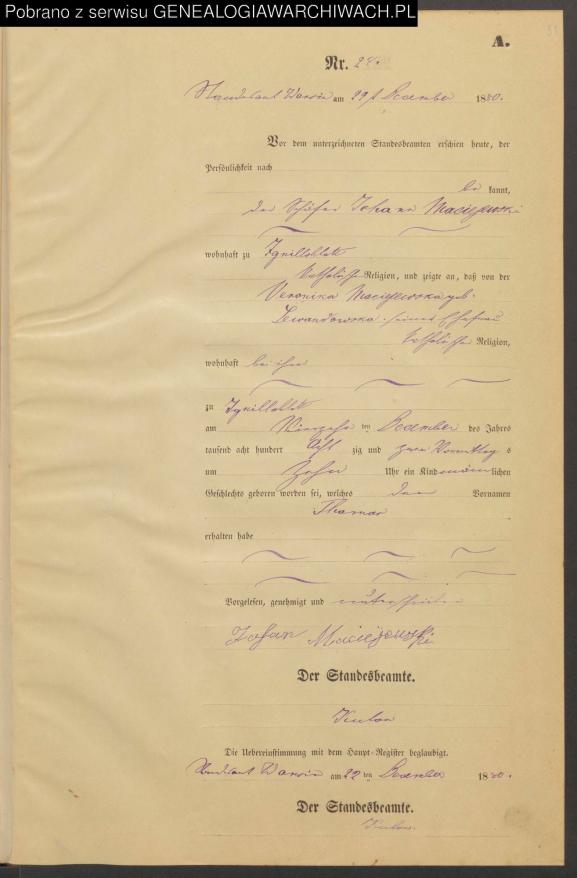 Pobrano z serwisu GENEALOGIAWARCHIWACH.PL
A.
Nr.
Standesamt am December 1880.
Vor dem unterzeichneten Standesbeamten erschien heute, der
Persönlichkeit nach
be kannt,
der Schäfer Johann Maciejewski
wohnhaft zu
katholischer Religion, und zeigte an, daß von der
Veronika Maciejewska geb.
Lewandowska, seiner Ehefrau
katholischer Religion,
wohnhaft bei ihm
zu
am Vierzehn ten December des Jahres
tausend acht hundert Acht zig und Vormittag s
um Zehn Uhr ein Kind männ lichen
Geschlechts geboren worden sei, welches den Vornamen
Thomas
erhalten habe
Vorgelesen, genehmigt und unterschrieben
Johan Maciejewski
Der Standesbeamte.
Die Uebereinstimmung mit dem Haupt-Register beglaubigt.
Standesamt am 22 ten December 1880.
Der Standesbeamte.